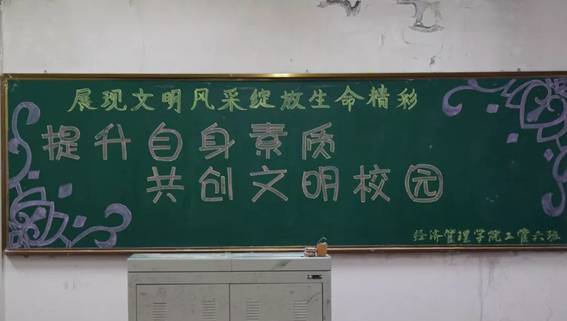 展现文明风采绽放生命精彩
提升自身素质
共创文明校园
经济管理学院工管六班